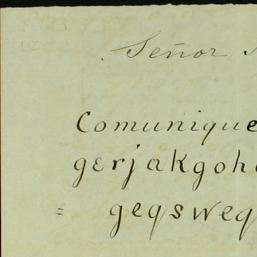 Señor
Comunique
gerjakgoh
gegsweg